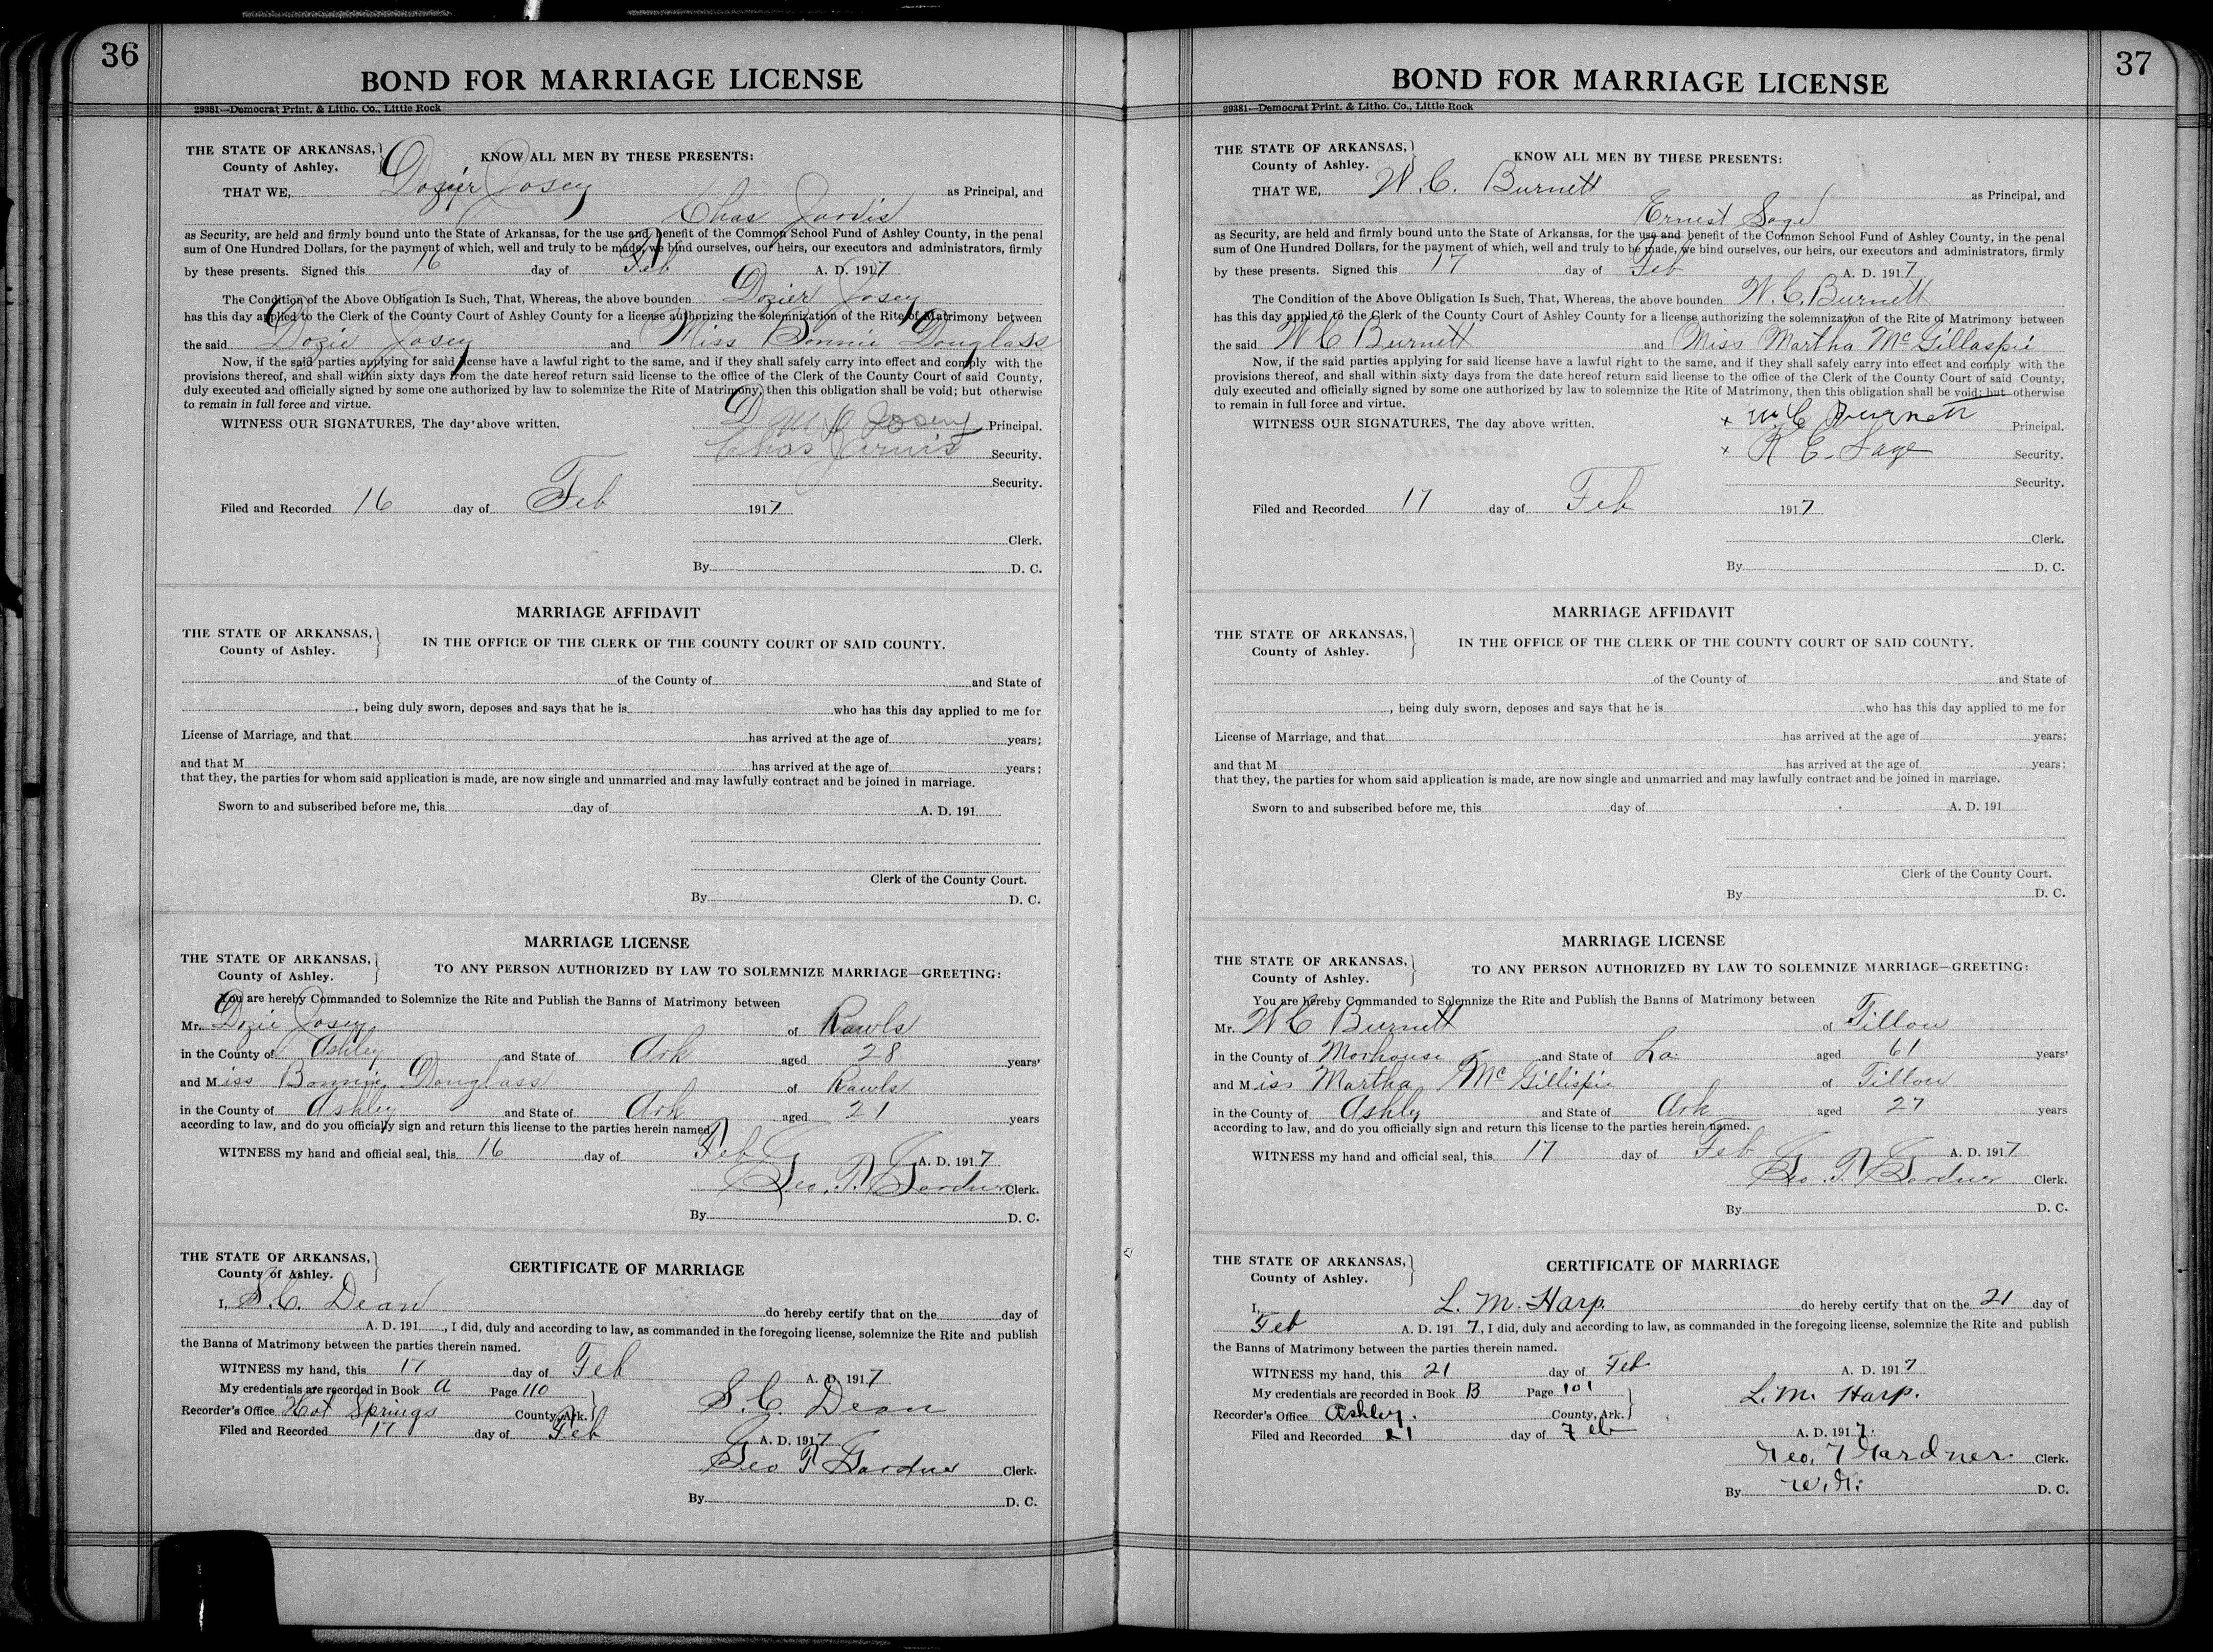 36
BOND FOR MARRIAGE LICENSE
29381—Democrat Print. & Litho. Co., Little Rock
THE STATE OF ARKANSAS,
County of Ashley.
KNOW ALL MEN BY THESE PRESENTS:
THAT WE, Dozier Josey as Principal, and
Chas Jarvis
as Security, are held and firmly bound unto the State of Arkansas, for the use and benefit of the Common School Fund of Ashley County, in the penal
sum of One Hundred Dollars, for the payment of which, well and truly to be made, we bind ourselves, our heirs, our executors and administrators, firmly
by these presents. Signed this 16 day of Feb A. D. 1917
The Condition of the Above Obligation Is Such, That, Whereas, the above bounden Dozier Josey
has this day applied to the Clerk of the County Court of Ashley County for a license authorizing the solemnization of the Rite of Matrimony between
the said Dozie Josey and Miss Bonnie Douglass
Now, if the said parties applying for said license have a lawful right to the same, and if they shall safely carry into effect and comply with the
provisions thereof, and shall within sixty days from the date hereof return said license to the office of the Clerk of the County Court of said County,
duly executed and officially signed by some one authorized by law to solemnize the Rite of Matrimony, then this obligation shall be void; but otherwise
to remain in full force and virtue.
WITNESS OUR SIGNATURES, The day above written. Josey Principal.
Chas Jarvis Security.
Security.
Filed and Recorded 16 day of Feb 1917
Clerk.
By D. C.
MARRIAGE AFFIDAVIT
THE STATE OF ARKANSAS,
County of Ashley.
IN THE OFFICE OF THE CLERK OF THE COUNTY COURT OF SAID COUNTY.
of the County of and State of
, being duly sworn, deposes and says that he is who has this day applied to me for
License of Marriage, and that has arrived at the age of years;
and that M has arrived at the age of years;
that they, the parties for whom said application is made, are now single and unmarried and may lawfully contract and be joined in marriage.
Sworn to and subscribed before me, this day of A. D. 191
Clerk of the County Court.
By D. C.
MARRIAGE LICENSE
THE STATE OF ARKANSAS,
County of Ashley.
TO ANY PERSON AUTHORIZED BY LAW TO SOLEMNIZE MARRIAGE—GREETING:
You are hereby Commanded to Solemnize the Rite and Publish the Banns of Matrimony between
Mr. Dozie Josey of Rawls
in the County of Ashley and State of Ark aged 28 years'
and Miss Bonnie Douglass of Rawls
in the County of Ashley and State of Ark aged 21 years
according to law, and do you officially sign and return this license to the parties herein named.
WITNESS my hand and official seal, this 16 day of Feb A. D. 1917
Geo. T. Gardner Clerk.
By D. C.
THE STATE OF ARKANSAS,
County of Ashley.
CERTIFICATE OF MARRIAGE
I, S. C. Dean do hereby certify that on the day of
A. D. 191 , I did, duly and according to law, as commanded in the foregoing license, solemnize the Rite and publish
the Banns of Matrimony between the parties therein named.
WITNESS my hand, this 17 day of Feb A. D. 1917
My credentials are recorded in Book A Page 110
S. C. Dean
Recorder's Office Hot Springs County, Ark.
Filed and Recorded 17 day of Feb A. D. 1917
Geo T Gardner Clerk.
By D. C.
37
BOND FOR MARRIAGE LICENSE
29381—Democrat Print. & Litho. Co., Little Rock
THE STATE OF ARKANSAS,
County of Ashley.
KNOW ALL MEN BY THESE PRESENTS:
THAT WE, W. C. Burnett as Principal, and
Ernest Sage
as Security, are held and firmly bound unto the State of Arkansas, for the use and benefit of the Common School Fund of Ashley County, in the penal
sum of One Hundred Dollars, for the payment of which, well and truly to be made, we bind ourselves, our heirs, our executors and administrators, firmly
by these presents. Signed this 17 day of Feb A. D. 1917
The Condition of the Above Obligation Is Such, That, Whereas, the above bounden W. C. Burnett
has this day applied to the Clerk of the County Court of Ashley County for a license authorizing the solemnization of the Rite of Matrimony between
the said W C Burnett and Miss Martha McGillaspie
Now, if the said parties applying for said license have a lawful right to the same, and if they shall safely carry into effect and comply with the
provisions thereof, and shall within sixty days from the date hereof return said license to the office of the Clerk of the County Court of said County,
duly executed and officially signed by some one authorized by law to solemnize the Rite of Matrimony, then this obligation shall be void; but otherwise
to remain in full force and virtue.
WITNESS OUR SIGNATURES, The day above written. x W C Burnett Principal.
x R C. Sage Security.
Security.
Filed and Recorded 17 day of Feb 1917
Clerk.
By D. C.
MARRIAGE AFFIDAVIT
THE STATE OF ARKANSAS,
County of Ashley.
IN THE OFFICE OF THE CLERK OF THE COUNTY COURT OF SAID COUNTY.
of the County of and State of
, being duly sworn, deposes and says that he is who has this day applied to me for
License of Marriage, and that has arrived at the age of years;
and that M has arrived at the age of years;
that they, the parties for whom said application is made, are now single and unmarried and may lawfully contract and be joined in marriage.
Sworn to and subscribed before me, this day of A. D. 191
Clerk of the County Court.
By D. C.
MARRIAGE LICENSE
THE STATE OF ARKANSAS,
County of Ashley.
TO ANY PERSON AUTHORIZED BY LAW TO SOLEMNIZE MARRIAGE—GREETING:
You are hereby Commanded to Solemnize the Rite and Publish the Banns of Matrimony between
Mr. W C Burnett of Tillou
in the County of Morhouse and State of La. aged 61 years'
and Miss Martha McGillispie of Tillou
in the County of Ashly and State of Ark aged 27 years
according to law, and do you officially sign and return this license to the parties herein named.
WITNESS my hand and official seal, this 17 day of Feb A. D. 1917
Geo. T. Gardner Clerk.
By D. C.
THE STATE OF ARKANSAS,
County of Ashley.
CERTIFICATE OF MARRIAGE
I, L. M. Harp. do hereby certify that on the 21 day of
Feb A. D. 1917, I did, duly and according to law, as commanded in the foregoing license, solemnize the Rite and publish
the Banns of Matrimony between the parties therein named.
WITNESS my hand, this 21 day of Feb A. D. 1917
My credentials are recorded in Book B Page 101
L. M. Harp.
Recorder's Office Ashley. County, Ark.
Filed and Recorded 21 day of Feb A. D. 1917.
Geo. T Gardner. Clerk.
By D. C.